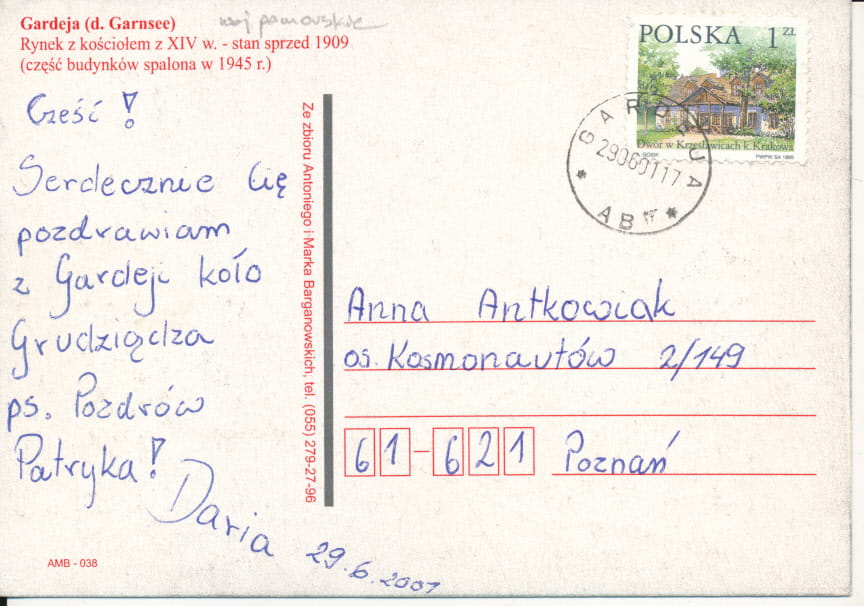 Gardeja (d. Garnsee)
Rynek z kościołem z XIV w. - stan sprzed 1909
(część budynków spalona w 1945 r.)
woj pomorskie
Cześć!
Serdecznie Cię
pozdrawiam
z Gardeji koło
Grudziądza
ps. Pozdrów
Patryka!
Daria
29.6.2001
AMB - 038
Ze zbioru Antoniego i Marka Barganowskich, tel. (055) 279-27-96
POLSKA 1 ZŁ
Dwór w Krzesławicach k. Krakowa
PWPW SA 1999
GARDEJA
29060117
AB
Anna Antkowiak
os. Kosmonautów 2/149
61-621 Poznań